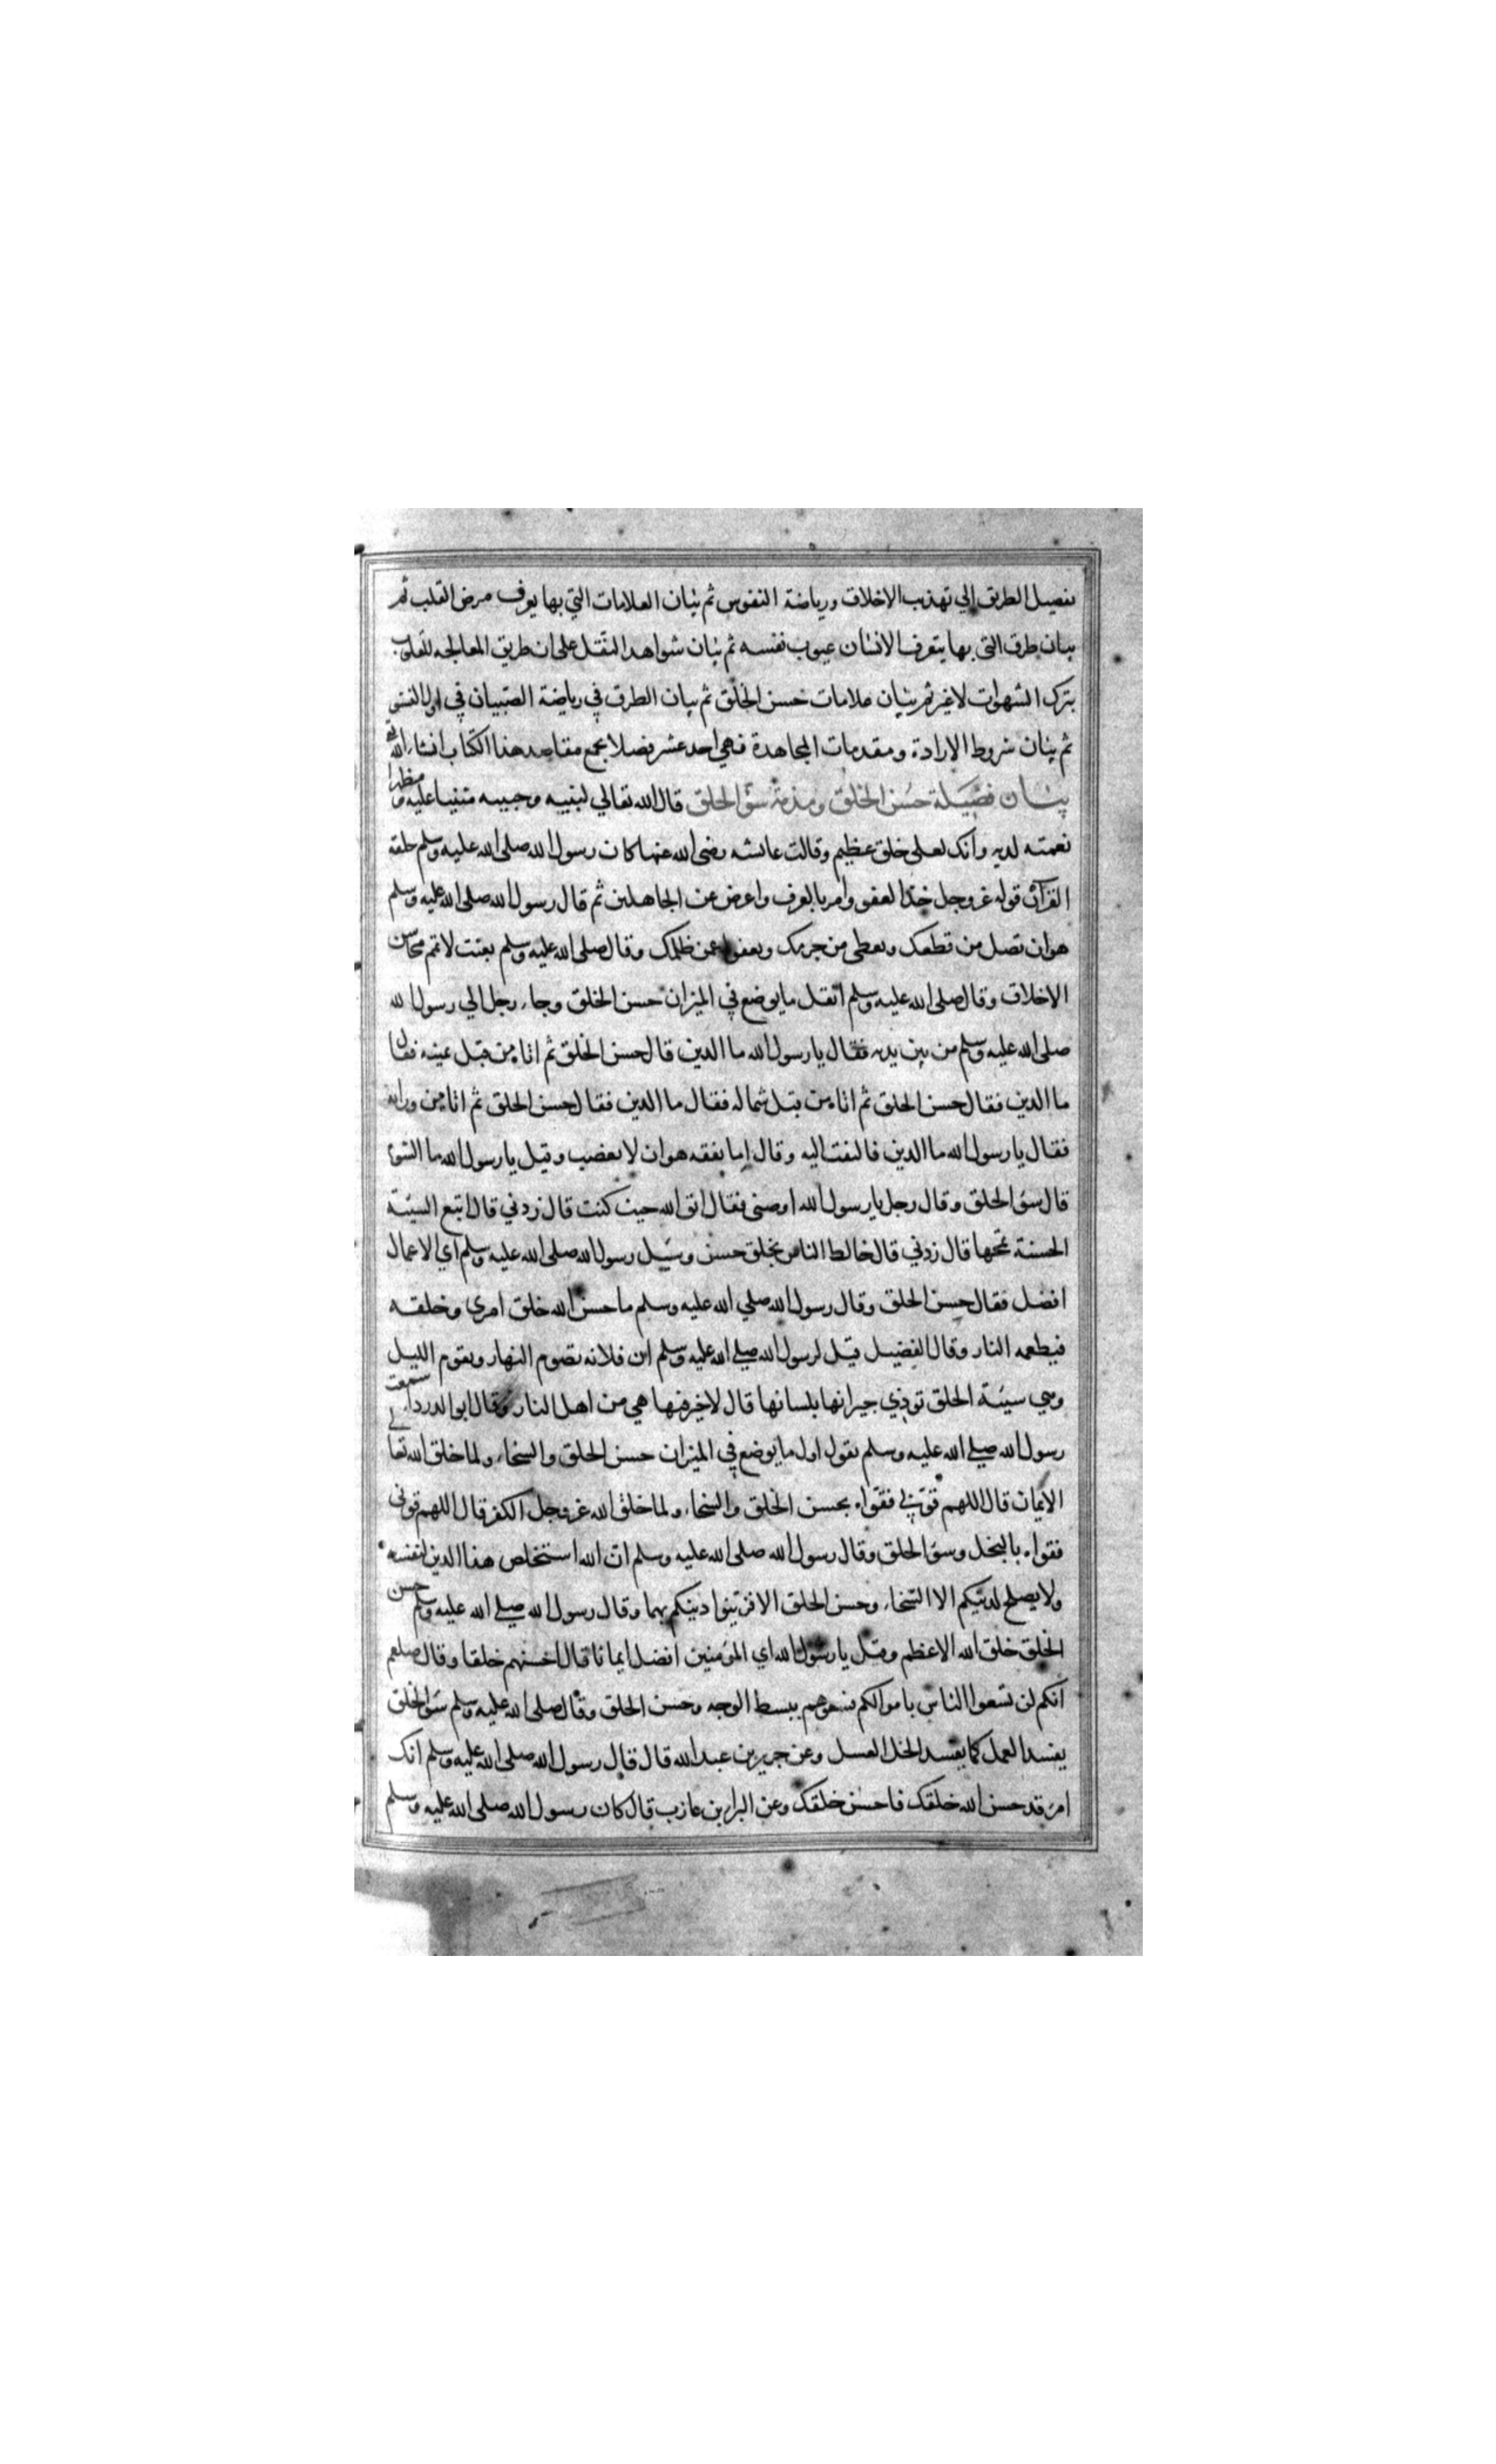 تفصيل الطريق الي تهذيب الاخلاق ورياضة النفوس ثم بيان العلامات التي بها يعرف مرض القلب ثم
بيان طرق التي بها يتعرف الانسان عيوب نفسه ثم بيان شواهد النقل على ان طريق المعالجه للقلوب
بترك الشهوات لا غير ثم بيان علامات حسن الخلق ثم بيان الطرق في رياضة الصبيان في اول النشو
ثم بيان شروط الارادة ومقدمات المجاهدة فهي احد عشر فصلا يجمع مقاصد هذا الكتاب انشاء الله تع
بيان فضيلة حسن الخلق ومذمة سؤ الخلق قال الله تعالي لنبيه وحبيبه مثنيا عليه ومظهرا
نعمته لديه وانك لعلى خلق عظيم وقالت عائشه رضى الله عنها كان رسول الله صلى الله عليه وسلم خلقه
القرآن قوله عز وجل خذ العفو وامر بالعرف واعرض عن الجاهلين ثم قال رسول الله صلى الله عليه وسلم
هو ان تصل من قطعك وتعطى من حرمك وتعفوا عمن ظلمك وقال صلى الله عليه وسلم بعثت لاتمم محاسن
الاخلاق وقال صلى الله عليه وسلم اثقل ما يوضع في الميزان حسن الخلق وجاء رجل الي رسول الله
صلى الله عليه وسلم من بين يديه فقال يا رسول الله ما الدين قال حسن الخلق ثم اتاه من قبل يمينه فقال
ما الدين فقال حسن الخلق ثم اتاه من قبل شماله فقال ما الدين فقال حسن الخلق ثم اتاه من ورائه
فقال يا رسول الله ما الدين فالتفت اليه وقال اما تفقه هو ان لا تغضب وقيل يا رسول الله ما الشؤم
قال سؤ الخلق وقال رجل يا رسول الله اوصنى فقال اتق الله حيث كنت قال زدني قال اتبع السيئة
الحسنة تمحها قال زدني قال خالط الناس بخلق حسن وسئيل رسول الله صلى الله عليه وسلم اي الاعمال
افضل فقال حسن الخلق وقال رسول الله صلي الله عليه وسلم ما حسن الله خلق امرى وخلقه
فيطعمه النار وقال الفضيل قيل لرسول الله صلي الله عليه وسلم ان فلانه تصوم النهار وتقوم الليل
وهي سيئة الخلق تؤذي جيرانها بلسانها قال لا خير فيها هي من اهل النار وقال ابو الدرداء سمعت
رسول الله صلي الله عليه وسلم يقول اول ما يوضع في الميزان حسن الخلق والسخاء ولما خلق الله تعالي
الايمان قال اللهم قوّني فقواه بحسن الخلق والسخاء ولما خلق الله عز وجل الكفر قال اللهم قوني
فقواه بالبخل وسؤ الخلق وقال رسول الله صلى الله عليه وسلم ان الله استخلص هذا الدين لنفسه
ولا يصلح لدينكم الا السخاء وحسن الخلق الا فزينوا دينكم بهما وقال رسول الله صلي الله عليه وسلم حسن
الخلق خلق الله الاعظم وقيل يا رسول الله اي المؤمنين افضل ايمانا قال احسنهم خلقا وقال صلعم
انكم لن تسعوا الناس باموالكم فسعوهم ببسط الوجه وحسن الخلق وقال صلى الله عليه وسلم سؤ الخلق
يفسد العمل كما يفسد الخل العسل وعن جرير بن عبد الله قال قال رسول الله صلى الله عليه وسلم انك
امرء قد حسن الله خلقك فاحسن خلقك وعن البراء بن عازب قال كان رسول الله صلى الله عليه وسلم